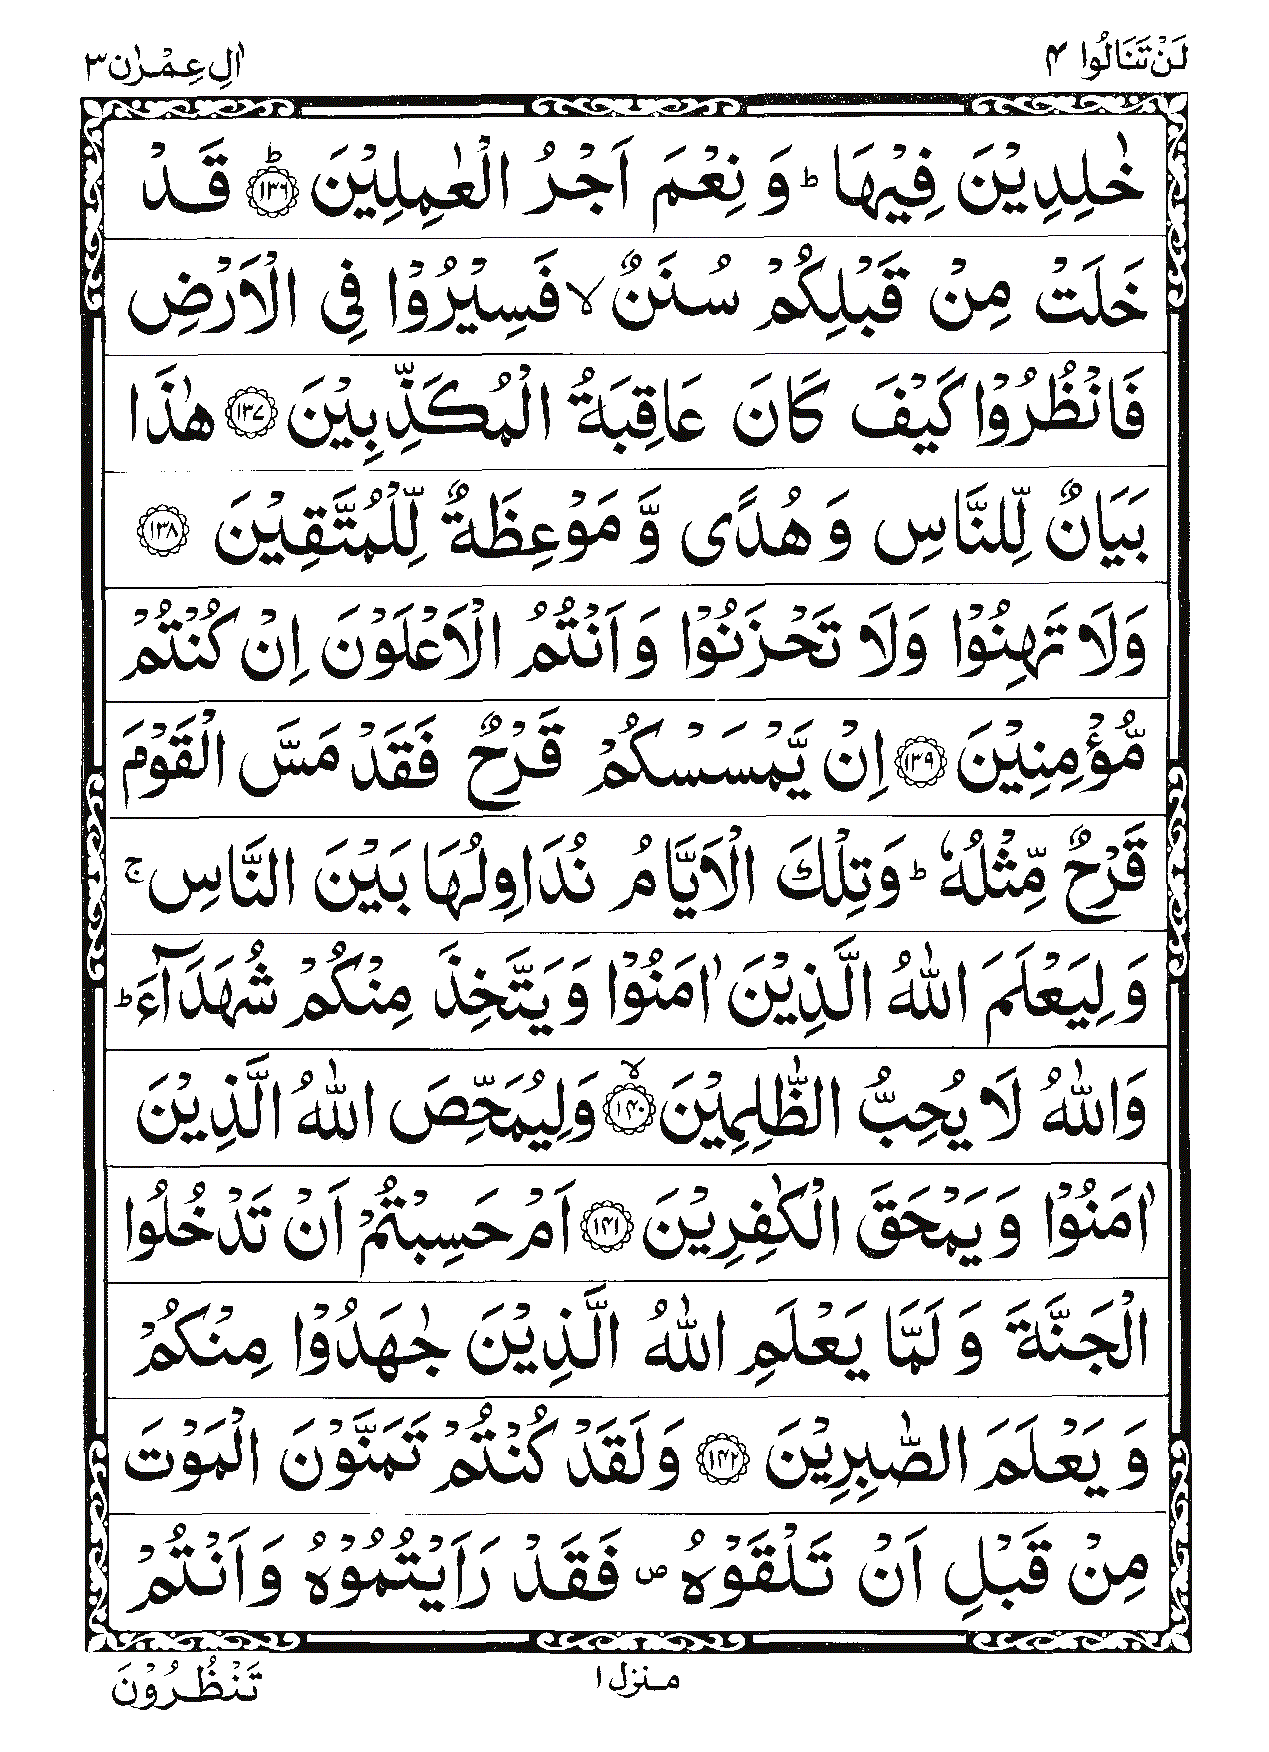 لَنْ تَنَالُوا ۴
اٰلِ عِمْرٰن ۳
خٰلِدِيْنَ فِيْهَا ؕ وَ نِعْمَ اَجْرُ الْعٰمِلِيْنَ ؕ﴿۱۳۶﴾ قَدْ
خَلَتْ مِنْ قَبْلِكُمْ سُنَنٌ ۙ فَسِيْرُوْا فِی الْاَرْضِ
فَانْظُرُوْا كَيْفَ كَانَ عَاقِبَةُ الْمُكَذِّبِيْنَ ﴿۱۳۷﴾ هٰذَا
بَيَانٌ لِّلنَّاسِ وَ هُدًی وَّ مَوْعِظَةٌ لِّلْمُتَّقِيْنَ ﴿۱۳۸﴾
وَلَا تَهِنُوْا وَلَا تَحْزَنُوْا وَ اَنْتُمُ الْاَعْلَوْنَ اِنْ كُنْتُمْ
مُّؤْمِنِيْنَ ﴿۱۳۹﴾ اِنْ يَّمْسَسْكُمْ قَرْحٌ فَقَدْ مَسَّ الْقَوْمَ
قَرْحٌ مِّثْلُهٗ ؕ وَتِلْكَ الْاَيَّامُ نُدَاوِلُهَا بَيْنَ النَّاسِ ۚ
وَلِيَعْلَمَ اللّٰهُ الَّذِيْنَ اٰمَنُوْا وَ يَتَّخِذَ مِنْكُمْ شُهَدَآءَ ؕ
وَاللّٰهُ لَا يُحِبُّ الظّٰلِمِيْنَ ۙ﴿۱۴۰﴾ وَلِيُمَحِّصَ اللّٰهُ الَّذِيْنَ
اٰمَنُوْا وَ يَمْحَقَ الْكٰفِرِيْنَ ﴿۱۴۱﴾ اَمْ حَسِبْتُمْ اَنْ تَدْخُلُوا
الْجَنَّةَ وَ لَمَّا يَعْلَمِ اللّٰهُ الَّذِيْنَ جٰهَدُوْا مِنْكُمْ
وَ يَعْلَمَ الصّٰبِرِيْنَ ﴿۱۴۲﴾ وَلَقَدْ كُنْتُمْ تَمَنَّوْنَ الْمَوْتَ
مِنْ قَبْلِ اَنْ تَلْقَوْهُ ۪ فَقَدْ رَاَيْتُمُوْهُ وَ اَنْتُمْ
منزل ۱
تَنْظُرُوْنَ